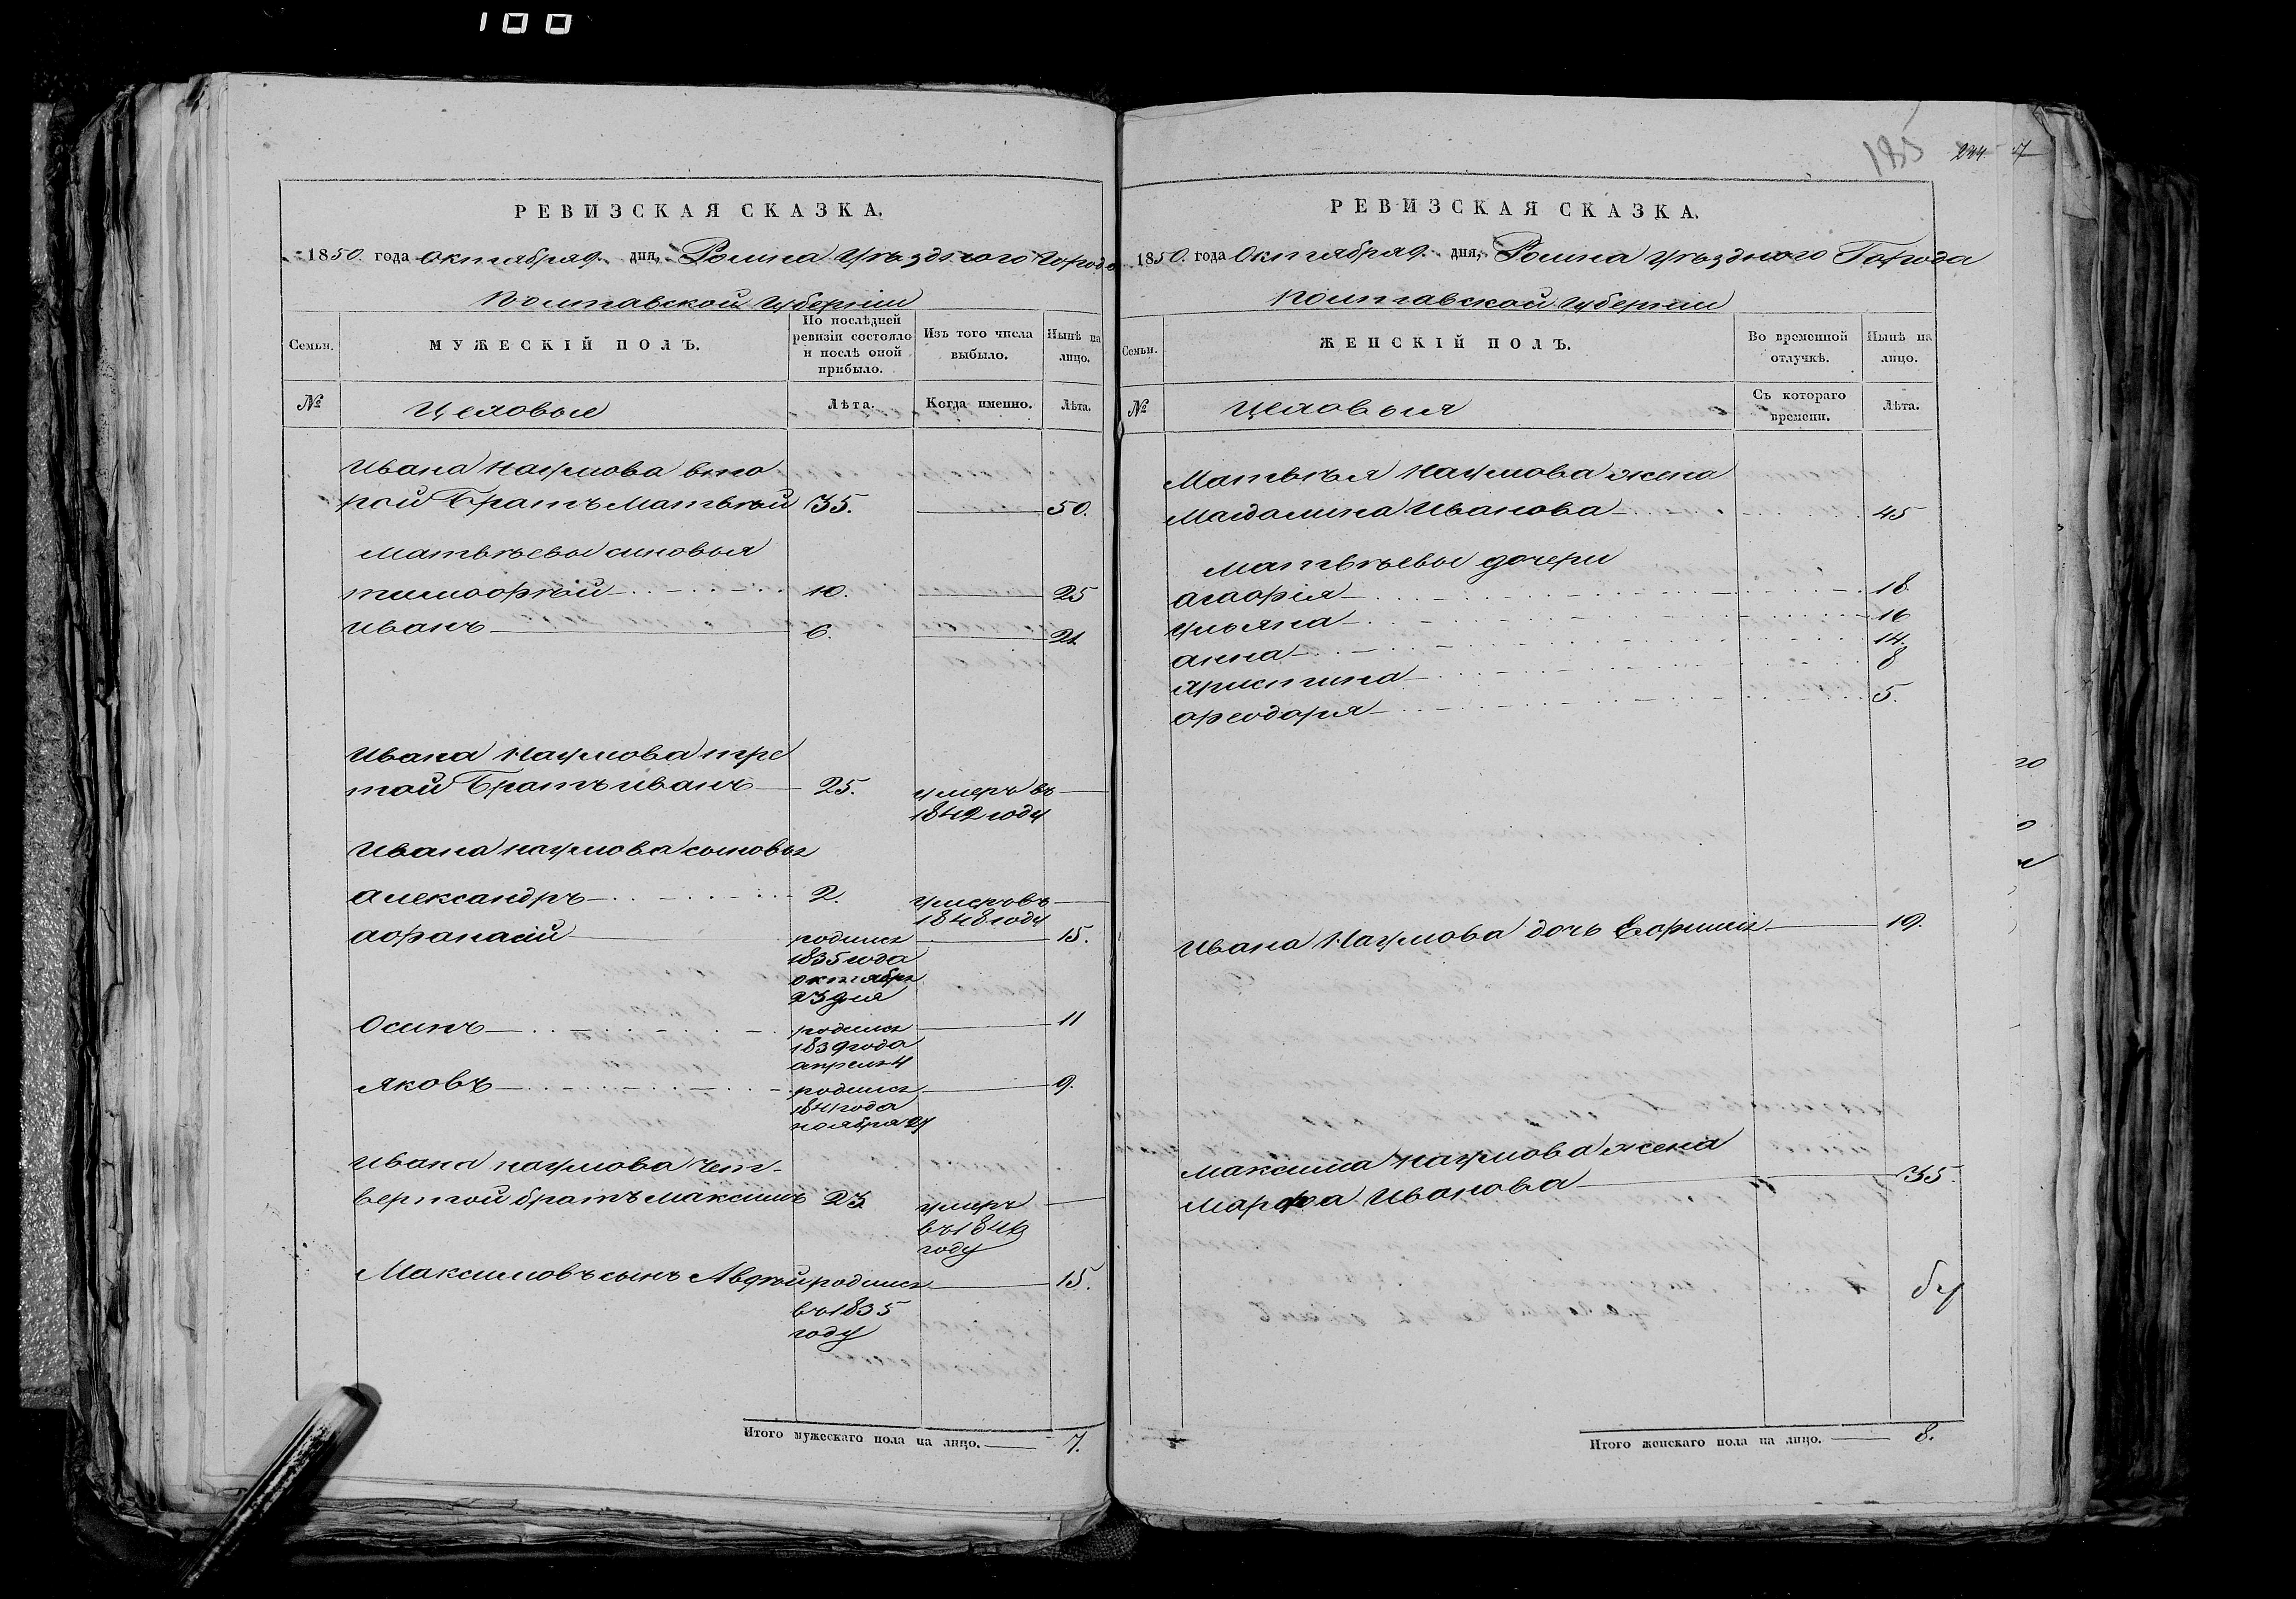 100
РЕВИЗСКАЯ СКАЗКА.
1850 года Октября 9. дня, Ромна Уѣзднаго Города
Полтавской Губерніи
Семьи.
МУЖЕСКІЙ ПОЛЪ.
По послѣдней ревизіи состояло и послѣ оной прибыло.
Изъ того числа выбыло.
Нынѣ на лицо.
№
Цеховые
Лѣта.
Когда именно.
Лѣта.
Ивана Наумова вто
рой Братъ Матвѣй 35. 50.
Матвѣевы сыновья
тимофѣй 10. 25
Иванъ 6. 21
Ивана Наумова тре
той Братъ иванъ 25. умеръ въ
1842 году
Ивана наумова сыновья
александръ 2. умеръ въ
1848 году
афанасій родился 15.
1835 года
октября
23 дня
Осипъ родился 11
1839 года
апреля 4
Яковъ родился 9.
1841 года
ноября 21
Ивана наумова чет-
вертой братъ максимъ 23 умеръ
въ 1849
году
Максимовъ сынъ Авдѣй родился 15.
въ 1835
году
Итого мужескаго пола на лицо. 7.
185 244 7
РЕВИЗСКАЯ СКАЗКА.
1850. года Октября 9. дня, Ромна Уѣзднаго Города
Полтавской Губерніи
Семьи.
ЖЕНСКІЙ ПОЛЪ.
Во временной отлучкѣ.
Нынѣ на лицо.
№
Цеховыя
Съ котораго времени.
Лѣта.
Матвѣя Наумова жена
Магдалина Иванова 45
Матвѣевы дочери
агафія 18
Ульяна 16
анна 14.
Христина 8
феодорія 5.
Ивана Наумова дочь Ефимія 19.
Максима Наумова жена
Марфа Иванова 35.
Итого женскаго пола на лицо. 8.